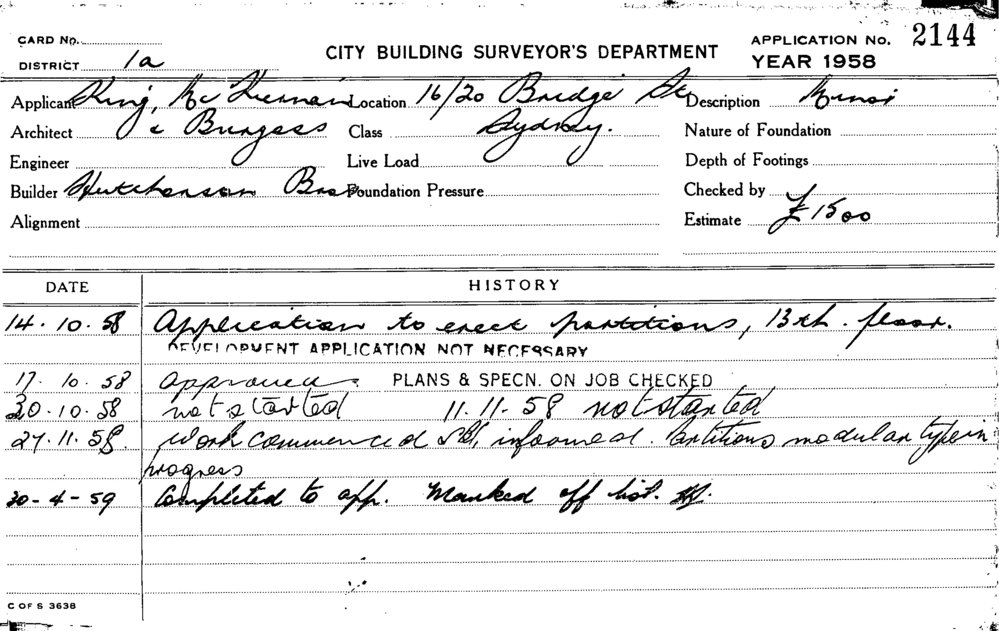 CARD No.
DISTRICT 1a
CITY BUILDING SURVEYOR'S DEPARTMENT
APPLICATION No. 2144
YEAR 1958
Applicant King, McKiernan Location 16/20 Bridge St Description Minor
Architect & Burgess Class Sydney. Nature of Foundation
Engineer Live Load Depth of Footings
Builder Hutcherson Bros Foundation Pressure Checked by
Alignment Estimate £1500
DATE HISTORY
14.10.58 Application to erect partitions, 13th. floor.
DEVELOPMENT APPLICATION NOT NECESSARY
17.10.58 Approved. PLANS & SPECN. ON JOB CHECKED
30.10.58 not started 11.11.58 not started
27.11.58. Work commenced informed. Partitions modular type in
progress
30-4-59 Completed to app. Marked off list.
C OF S 3638